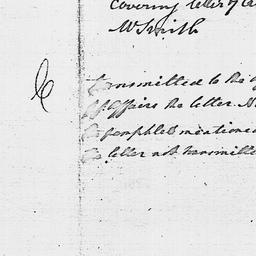 Covering letter of
Mr Smith
transmitted to the
of Affairs the letter.
pamphlet mentioned
letter not transmitte